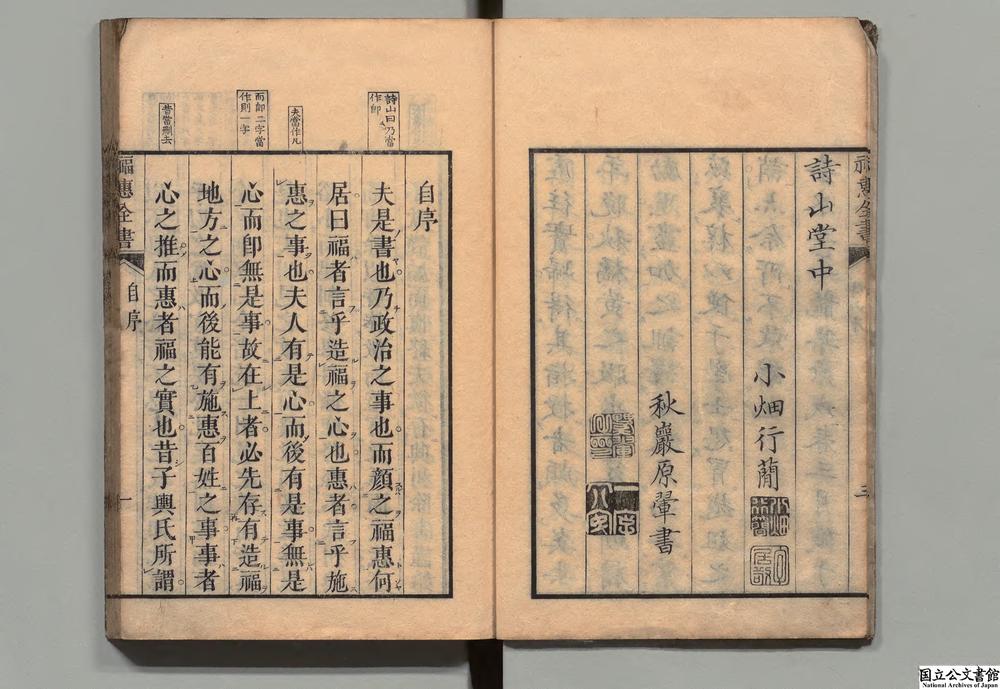 詩山堂中
小畑行蕳
秋巖原翬書
福惠全書
三
詩山曰乃當
作即
夫當作凡
而即二字當
作則一字
昔當刪去
自序
夫是書也乃政治之事也而顏之福惠何
居曰福者言乎造福之心也惠者言乎施
惠之事也夫人有是心而後有是事無是
心而卽無是事故在上者必先存有造福
地方之心而後能有施惠百姓之事事者
心之推而惠者福之實也昔子輿氏所謂
福惠全書
自序
一
国立公文書館
National Archives of Japan